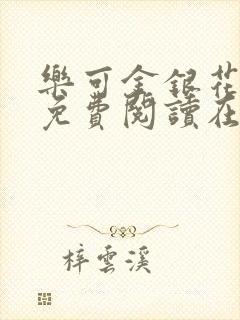 樂可金銀花
免費閱讀在
梓雲溪